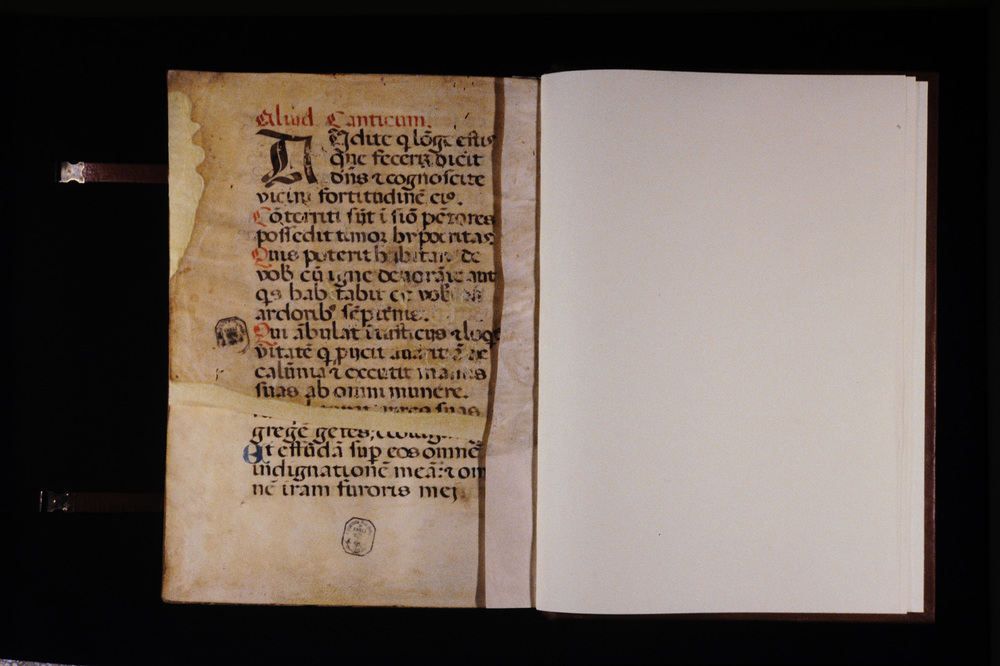 Aliud Canticum.
Audite q lõge estis
que fecerĩ dicit
dñs ⁊ cognoscite
vicini fortitudinẽ eiꝰ.
Cõterriti sũt ĩ siõ peccatores
possedit timor hypocritas
Quis poterit habitare de
vob̃ cũ igne deuorãte aut
qs habitabit ex vob̃
ardorib̃ sẽpiternis.
Qui ãbulat ĩ iusticijs ⁊ loqr̃
v̓itatẽ q ꝓijcit auaritiã ex
calũnia ⁊ excutit manus
suas ab omni munere.
suas
gregẽ
Et effũdã sup eos omnẽ
indignationẽ meã: ⁊ om
nẽ iram furoris mej